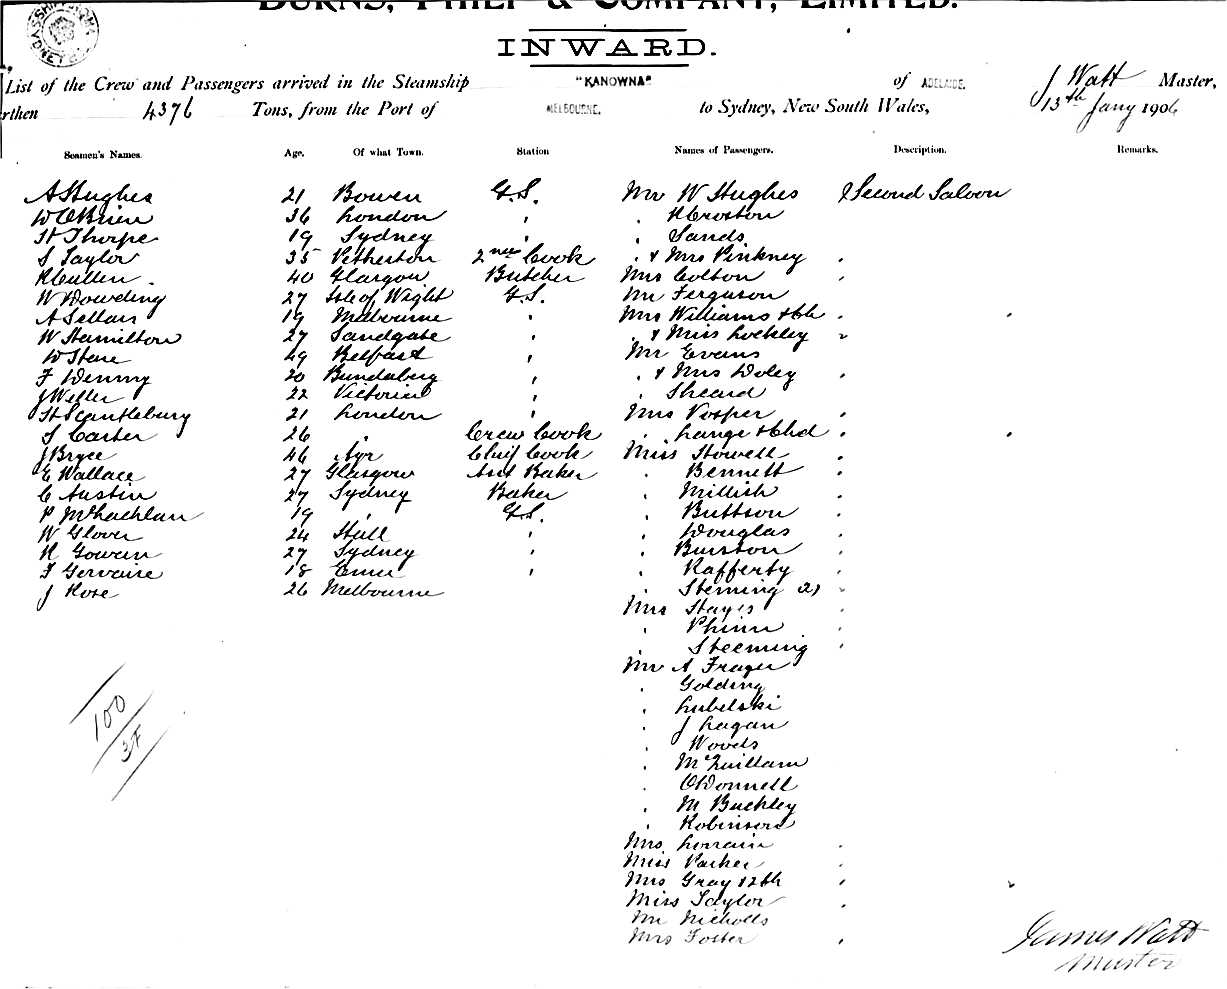 BURNS, PHILP & COMPANY, LIMITED.
INWARD.
List of the Crew and Passengers arrived in the Steamship "KANOWNA" of ADELAIDE. J Watt Master,
rthen 4376 Tons, from the Port of MELBOURNE. to Sydney, New South Wales, 13th Jany 1906
Seamen's Names. Age. Of what Town. Station Names of Passengers. Description. Remarks.
A Hughes 21 Bowen G.S. Mr W Hughes Second Saloon
W O'Brien 36 London " " R Croston
H Thorpe 19 Sydney " " Sands
S Taylor 35 2nd Cook " & Mrs Pinkney "
R Cullen 40 Glasgow Butcher Mrs Colton "
W Dowding 27 Isle of Wight G.S. Mr Ferguson
A Sellars 19 Melbourne " Mrs Williams & Ch "
W Hamilton 27 Sandgate " " & Miss Lockley "
W Stone 49 Belfast " Mr Evans
F Denny 20 Bundaberg " " & Mrs Doley "
J Weller 22 Victoria " " Sheard
H Scantlebury 21 London " Mrs Vosper "
S Carter 26 " Crew Cook " Lange & Chd "
J Bryce 46 Ayr Chief Cook Miss Howell "
E Wallace 27 Glasgow Asst Baker " Bennett "
C Austin 27 Sydney Baker " Millish "
P McLachlan 19 " G.S. " Buttson "
W Glover 24 Hull " " Douglas "
R Gowan 27 Sydney " " Burston "
F Gervaise 18 " " Rafferty "
J Rose 26 Melbourne " Steming 2) "
Mrs Hayes "
" Phinn "
" Steeming "
Mr A Frazer
" Golding
" Lubelski
" J Lagan
" Woods
" McQuillam
" O'Donnell
" M Buckley
" Robinson
Mrs Lorrain "
Miss Parker "
Mrs Gray "
Miss Taylor "
Mr Nicholls
Mrs Foster "
100
3F
James Watt
Master